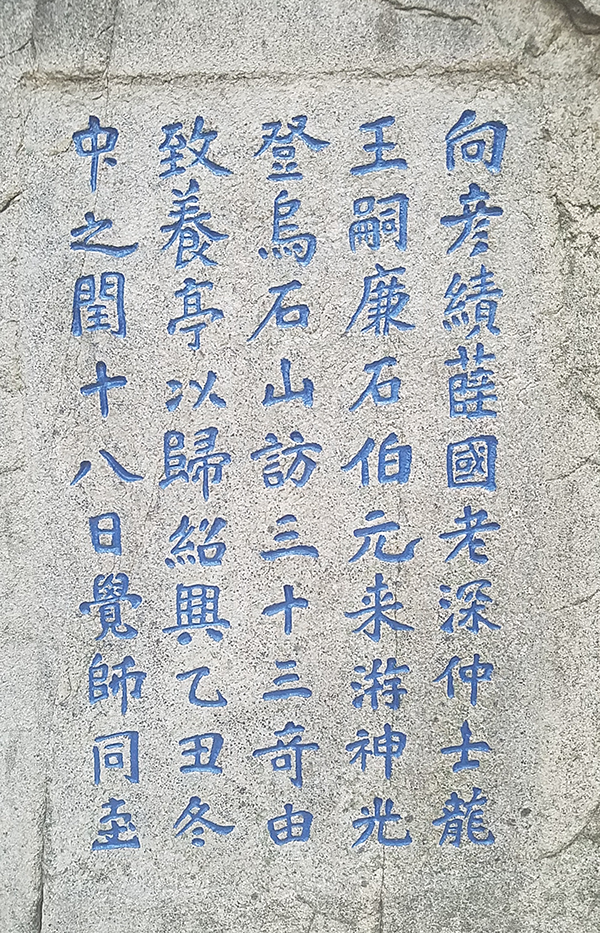 向彦績薛國老深仲士龍
王嗣廉石伯元来游神光
登烏石山訪三十三竒由
致養亭以歸紹興乙丑冬
中之閏十八日覺師同至